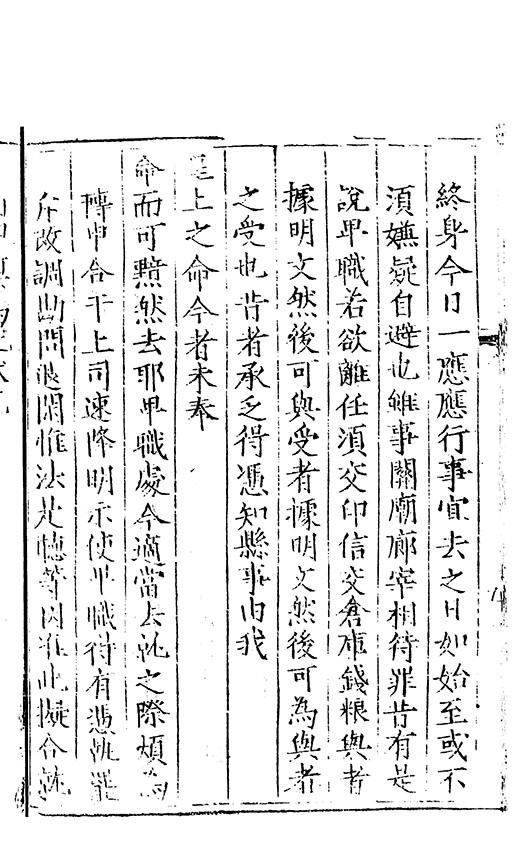 終身今日一應應行事宜去之日如始至或不
須嫌疑自避也雖事關廟廊宰相待罪昔有是
說卑職若欲離任須交印信交倉庫錢粮與者
據明文然後可與受者據明文然後可為與者
之受也昔者承乏得憑知縣事由我
是上之命今者未奉
命而可黯然去耶卑職處今適當去就之際煩為
轉申合干上司速降明示使卑職得有憑執罷
斥改調勘問退閑惟法是聽等因准此擬合就